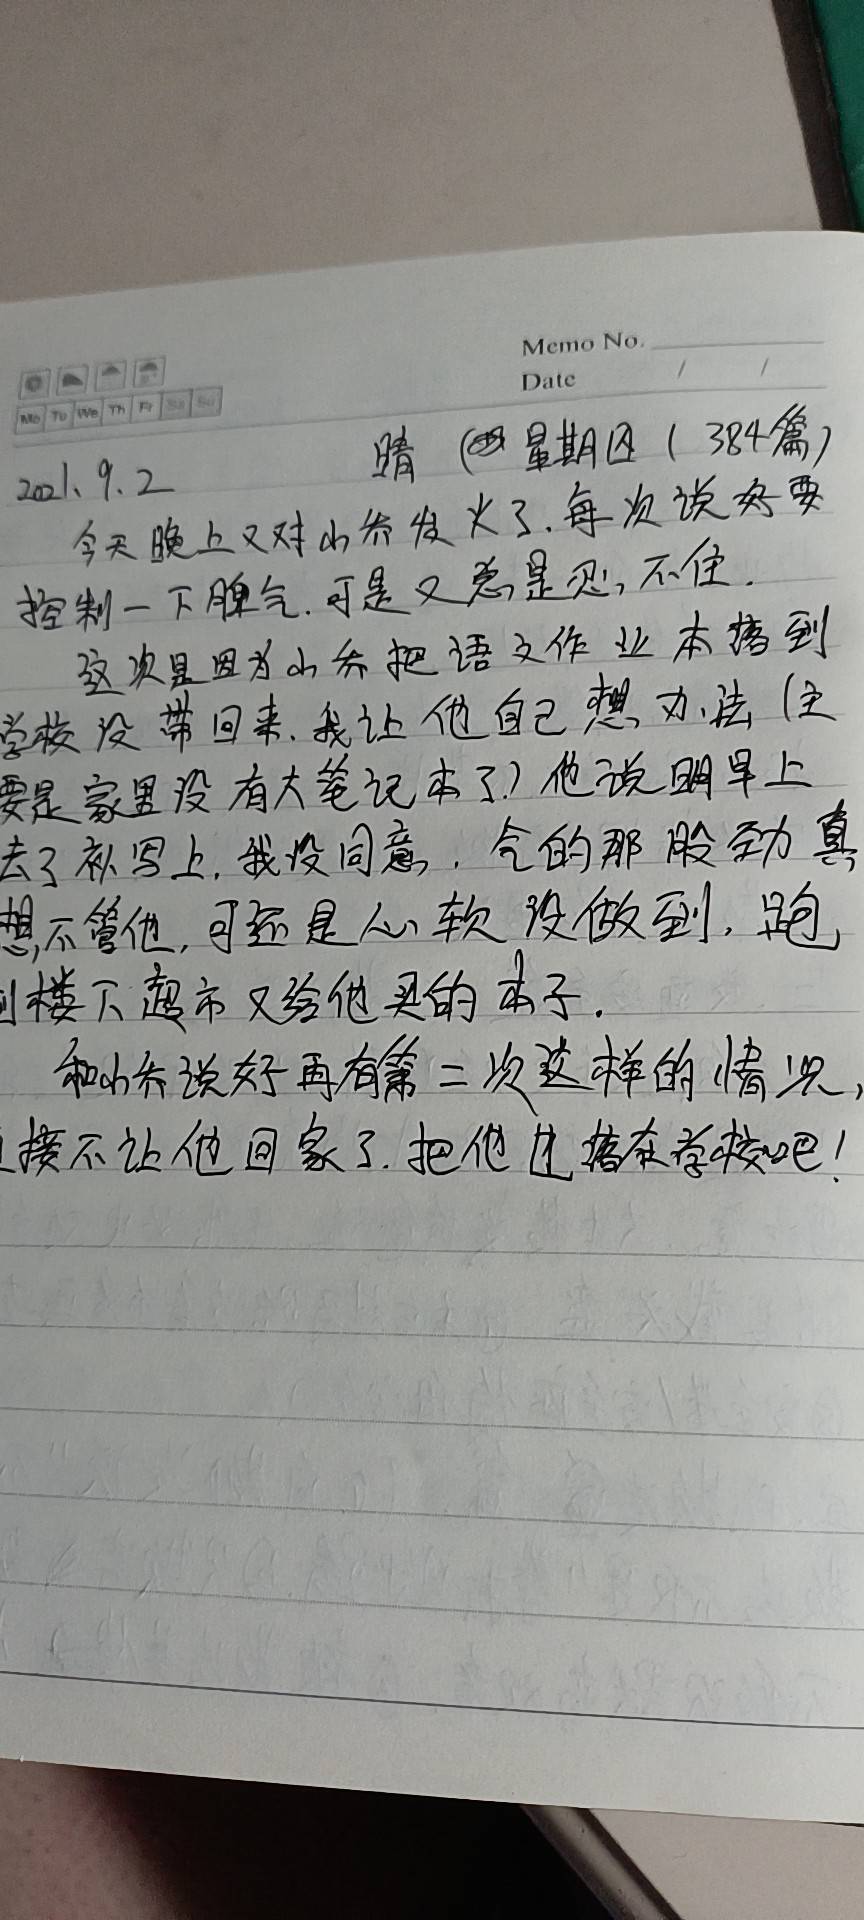 Memo No.
Date / /
Mo Tu We Th Fr Sa Su
2021.9.2 晴 星期四 (384篇)
今天晚上又对小乔发火了.每次说好要
控制一下脾气.可是又总是忍不住.
这次是因为小乔把语文作业本落到
学校没带回来.我让他自己想办法(主
要是家里没有大笔记本了)他说明早上
去了补写上.我没同意.气的那股劲真
想不管他,可还是心软没做到.跑
到楼下超市又给他买的本子.
和小乔说好再有第二次这样的情况,
直接不让他回家了.把他也落在学校吧!